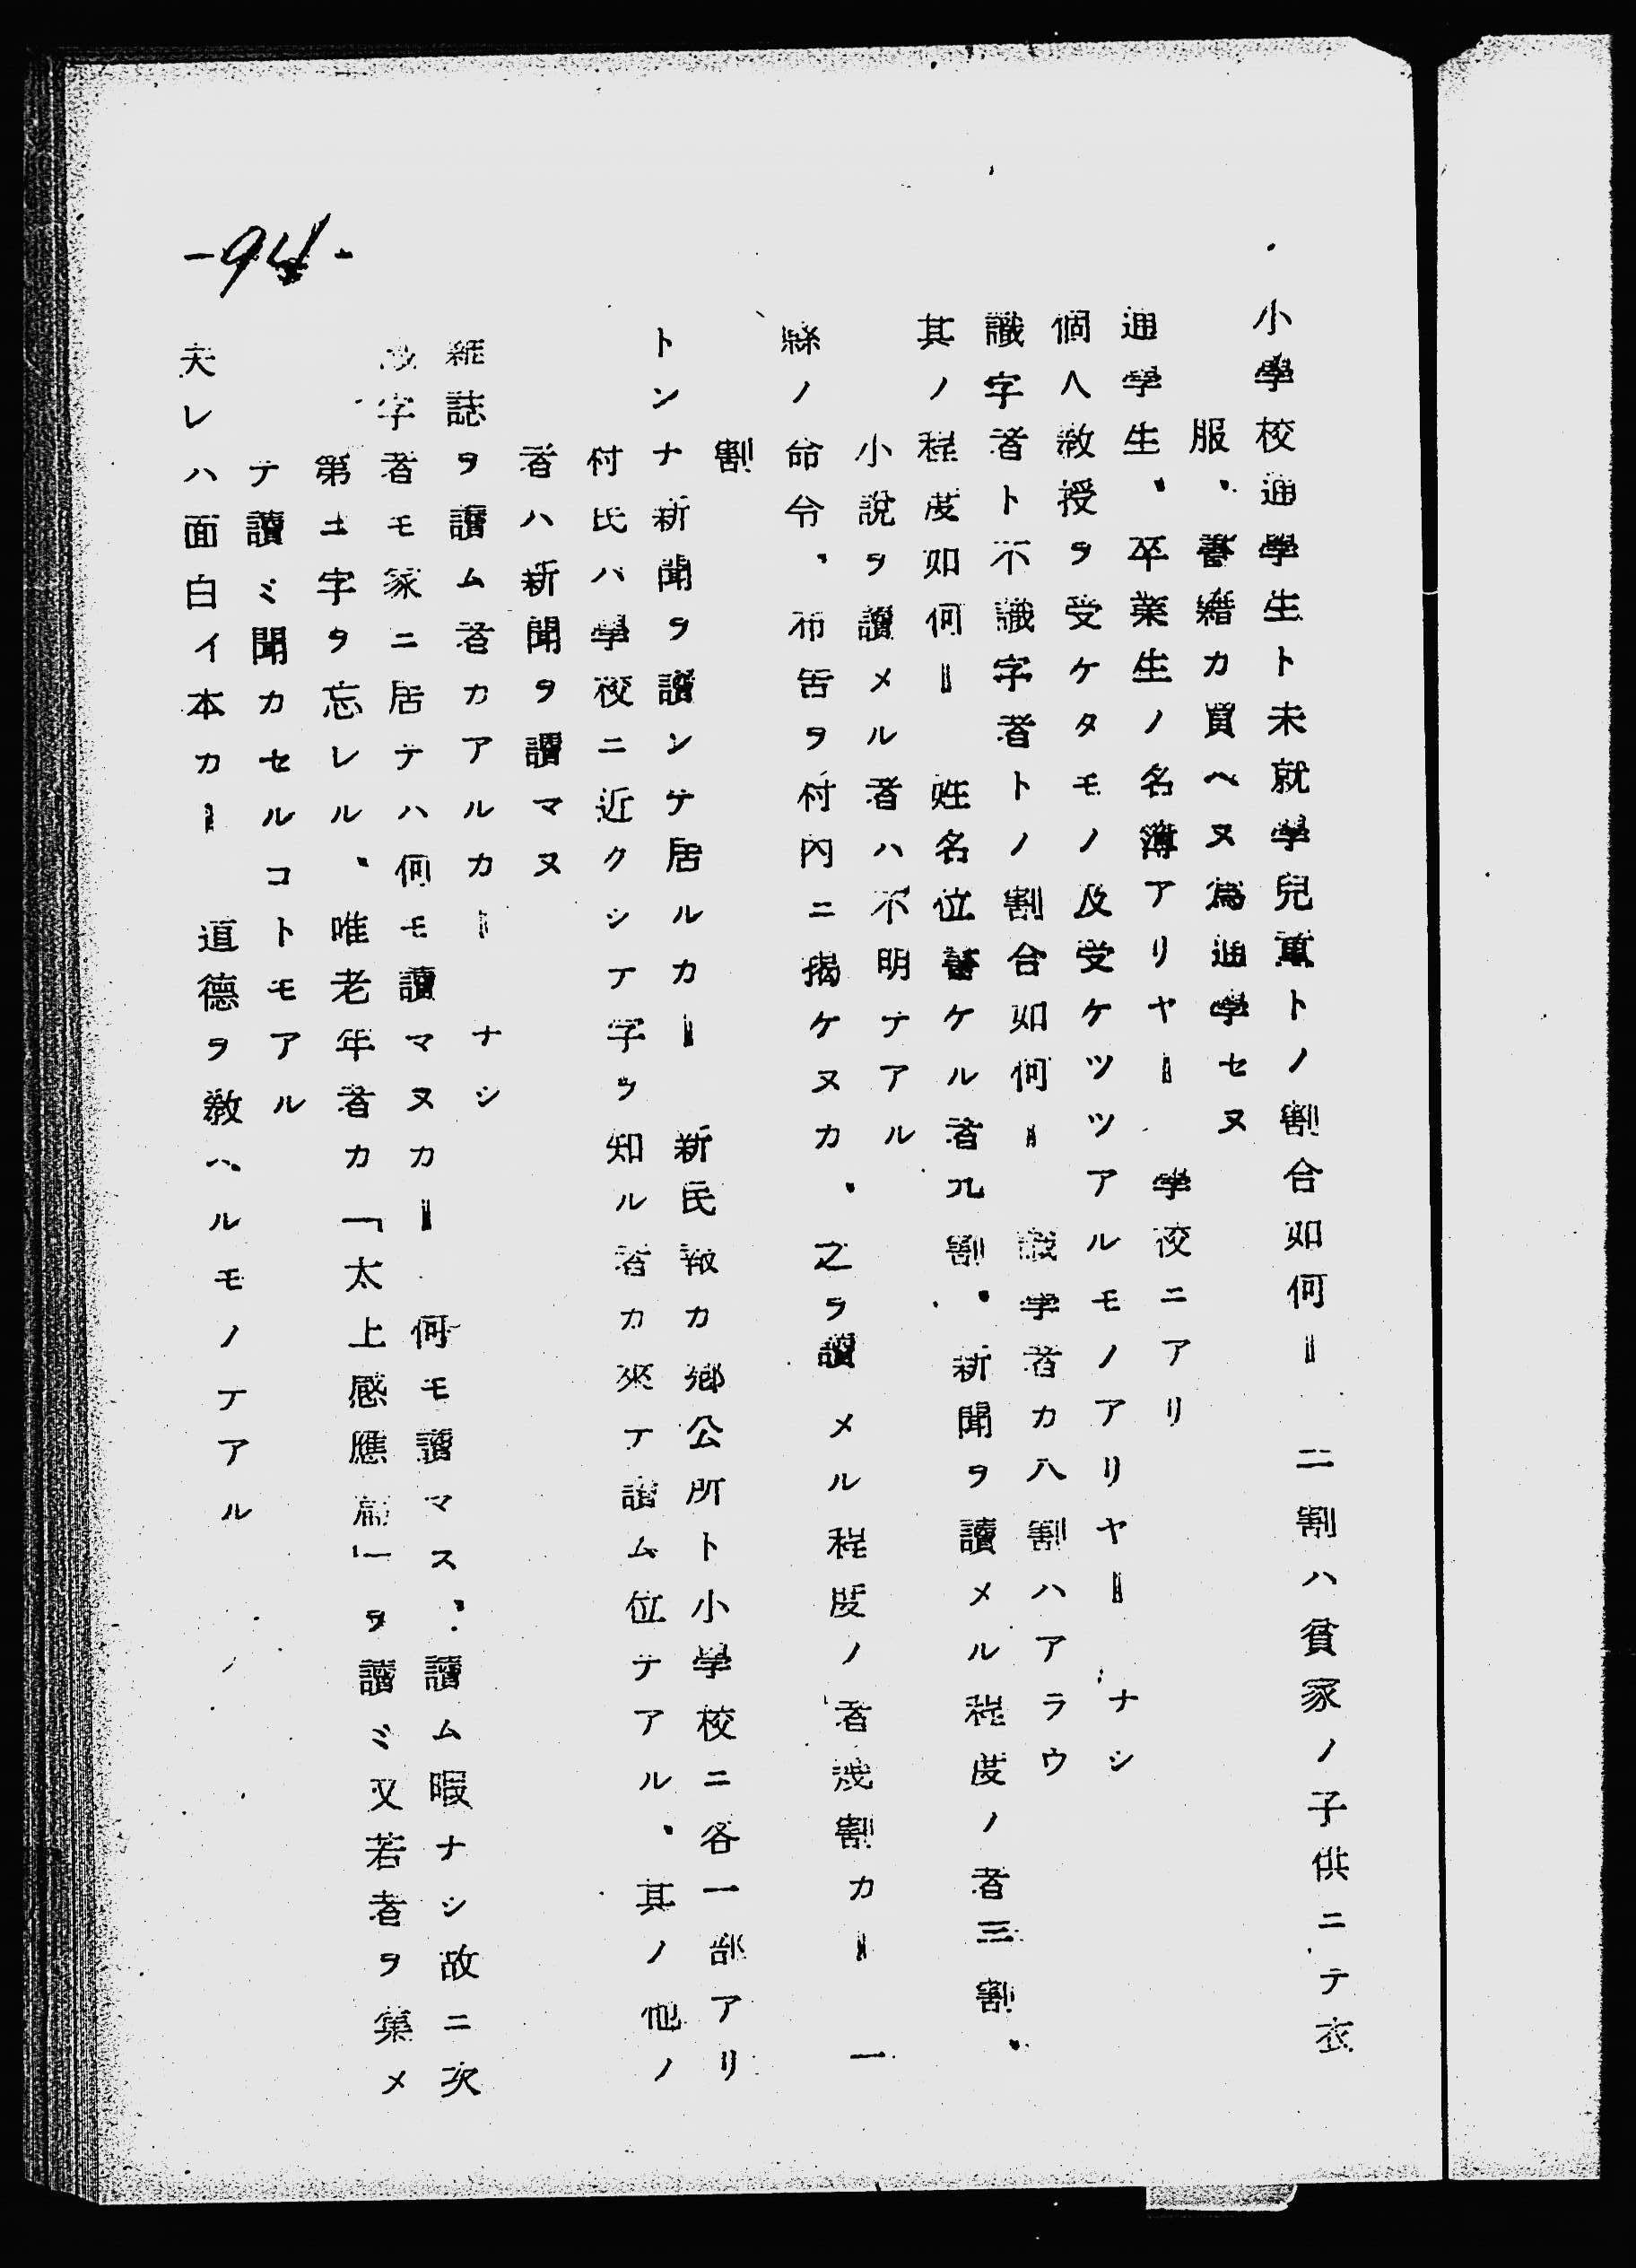 小學校通學生ト未就學兒童トノ割合如何ー 二割ハ貧家ノ子供ニテ衣
服、書籍カ買ヘヌ爲通學セヌ
通學生、卒業生ノ名簿アリヤー 學校ニアリ
個人敎授ヲ受ケタモノ及受ケツツアルモノアリヤー ナシ
識字者ト不識字者トノ割合如何ー 識字者カ八割ハアラウ
其ノ程度如何ー 姓名位書ケル者九割、新聞ヲ讀メル程度ノ者三割、
小說ヲ讀メル者ハ不明テアル
縣ノ命令、布告ヲ村內ニ揭ケヌカ、之ヲ讀メル程度ノ者幾割カー 一
割
トンナ新聞ヲ讀ンテ居ルカー 新民報カ鄕公所ト小學校ニ各一部アリ
村民ハ學校ニ近クシテ字ヲ知ル者カ來テ讀ム位テアル、其ノ他ノ
者ハ新聞ヲ讀マヌ
雜誌ヲ讀ム者カアルカー ナシ
字者モ家ニ居テハ何モ讀マヌカー 何モ讀マス、讀ム暇ナシ故ニ次
第ニ字ヲ忘レル、唯老年者カ「太上感應篇」ヲ讀ミ又若者ヲ集メ
テ讀ミ聞カセルコトモアル
夫レハ面白イ本カー 道德ヲ敎ヘルモノテアル
-94-